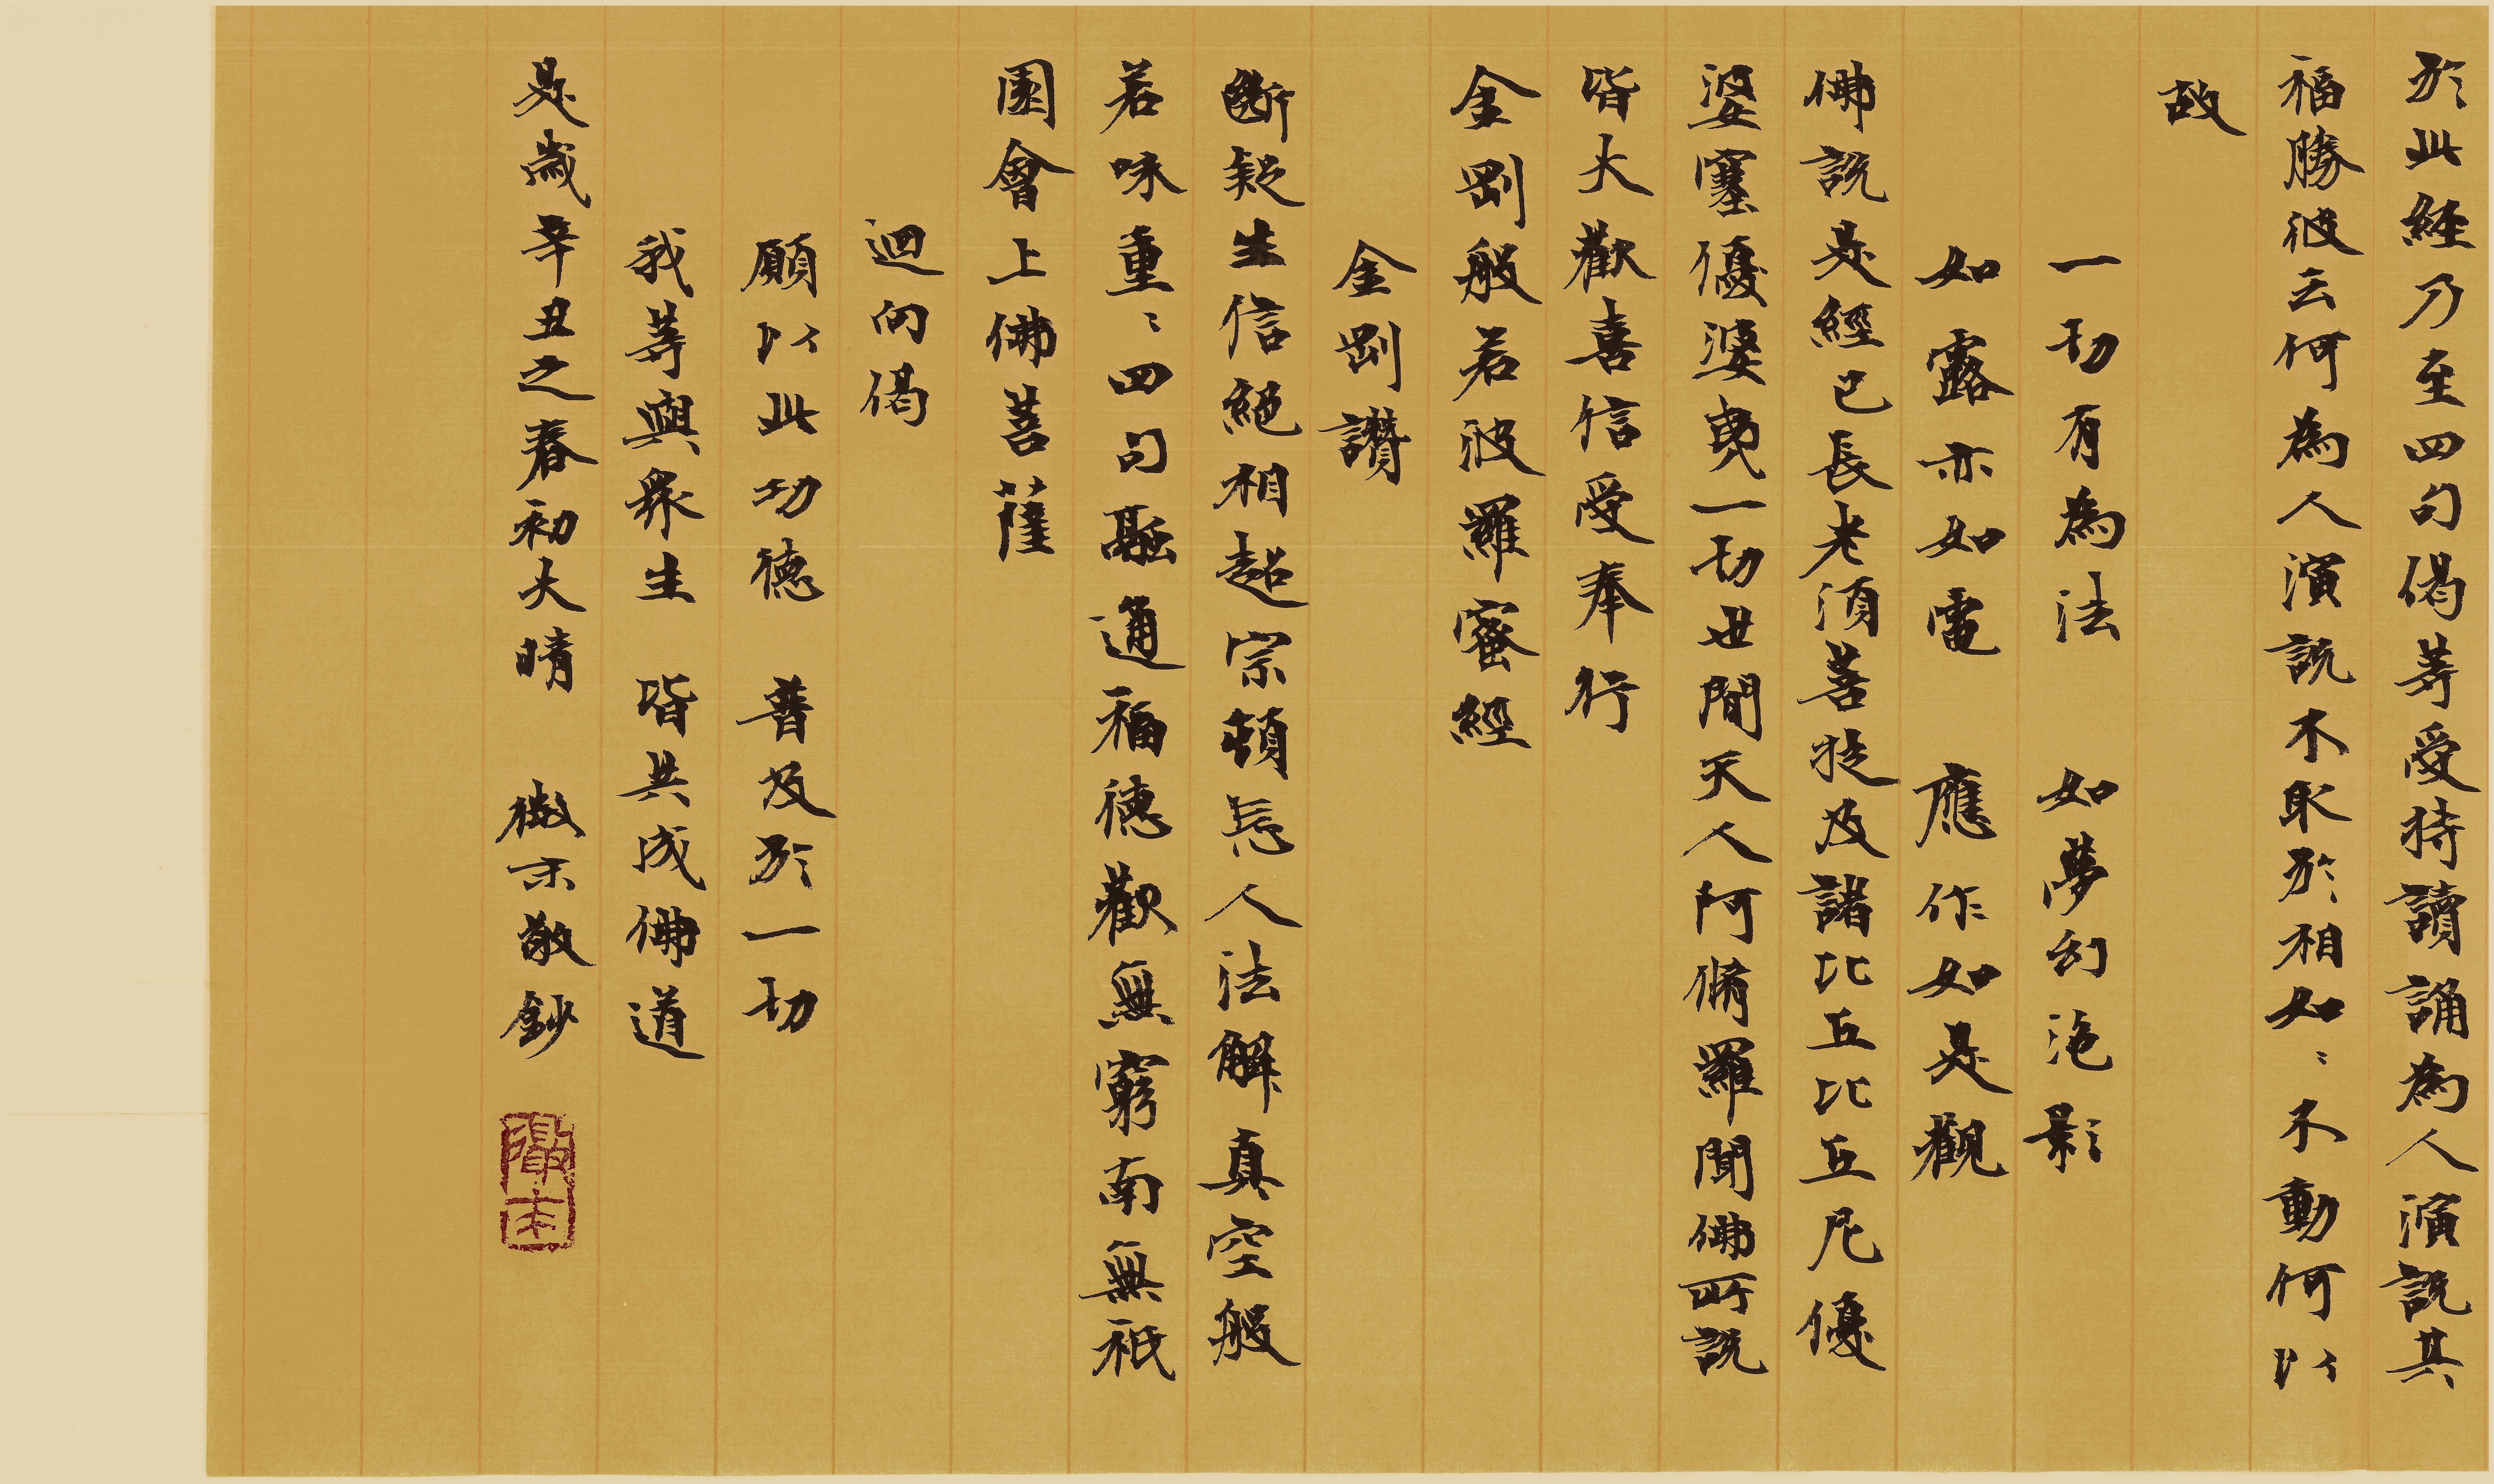 於此經乃至四句偈等受持讀誦為人演說其
福勝彼云何為人演說不取於相如〻不動何以
故
一切有為法 如夢幻泡影
如露亦如電 應作如是觀
佛說是經已長老須菩提及諸比丘比丘尼優
婆塞優婆夷一切世間天人阿脩羅聞佛所說
皆大歡喜信受奉行
金剛般若波羅蜜經
金剛讚
斷疑生信絕相超宗頓忘人法解真空般
若味重〻四句融通福德歎無窮南無祇
園會上佛菩薩
迴向偈
願以此功德 普及於一切
我等與眾生 皆共成佛道
是歲辛丑之春初大晴 微宗敬鈔